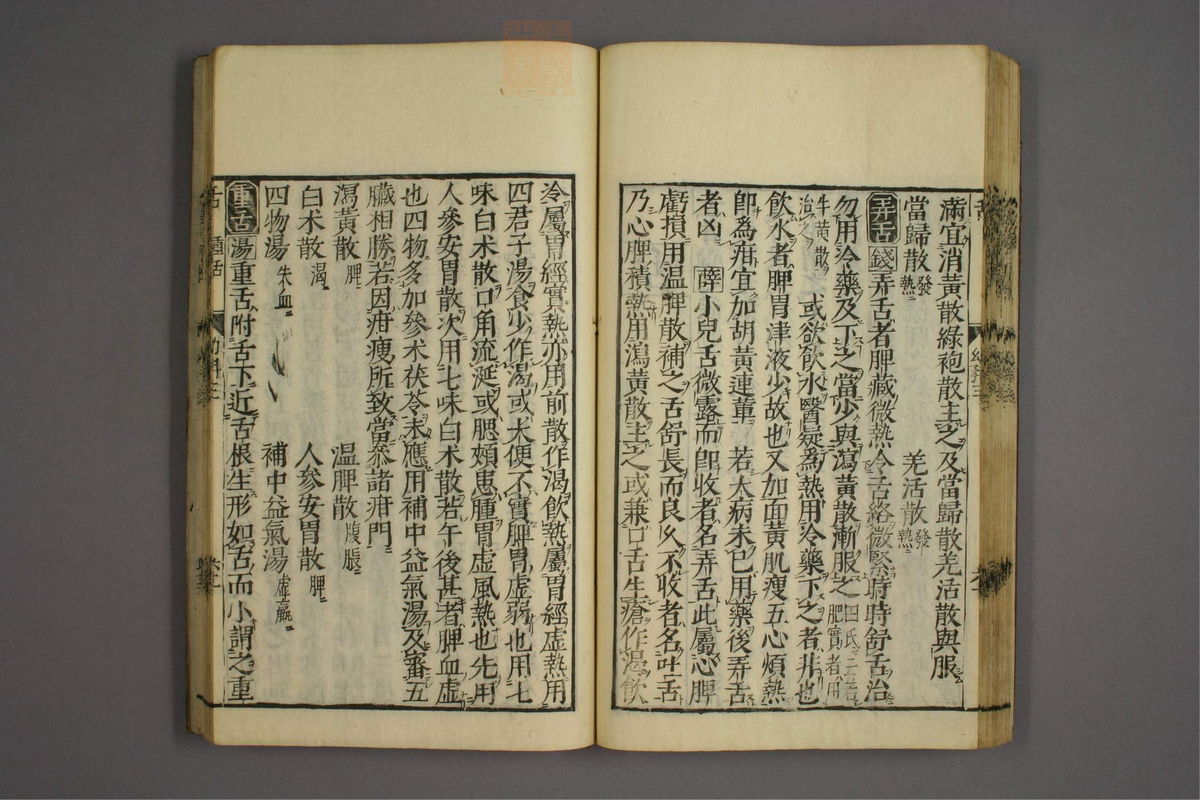 滿宜消黃散綠袍散主之及當歸散羌活散與服
當歸散發熱 羌活散發熱
弄舌 錢弄舌者脾藏微熱令舌絡微緊時時舒舌治
勿用冷藥及下之當少與瀉黃散漸服之田氏云若肥實者用
牛黃散治之 或欲飲水醫疑為熱用冷藥下之者非也
飲水者脾胃津液少故也又加面黃肌瘦五心煩熱
卽爲疳宜加胡黃連輩 若大病未已用藥後弄舌
者凶 薛小兒舌微露而卽收者名弄舌此屬心脾
虧損用温脾散補之舌舒長而良久不收者名吐舌
乃心脾積熱用瀉黃散主之或兼口舌生瘡作渴飲
冷屬胃經實熱亦用前散作渴飲熱屬胃經虛熱用
四君子湯食少作渴或大便不實脾胃虛弱也用七
味白朮散口角流涎或腮頰患腫胃虛風熱也先用
人參安胃散次用七味白朮散若午後甚者脾血虛
也四物多加參朮茯苓未應用補中益氣湯及審五
臟相勝若因疳瘦所致當參諸疳門
瀉黃散脾 温脾散腹脹
白朮散渴 人參安胃散脾
四物湯朱血 補中益氣湯虛羸
重舌 湯重舌附舌下近舌根生形如舌而小謂之重